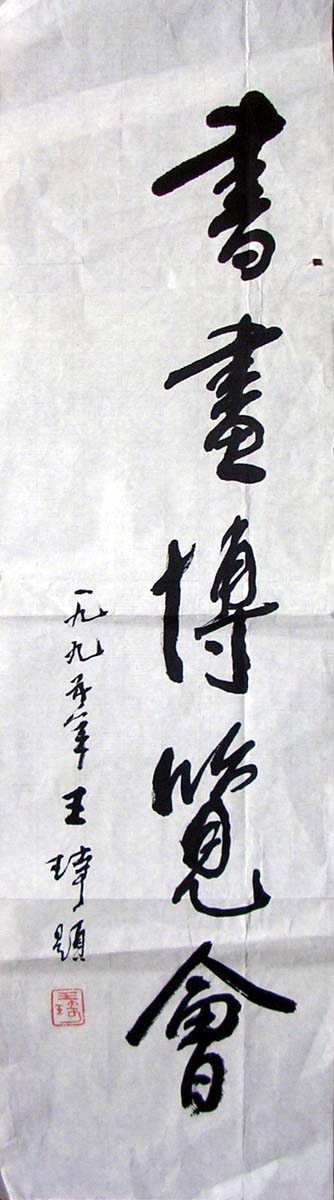 書畫博覽會
一九九五年王琦題
王琦